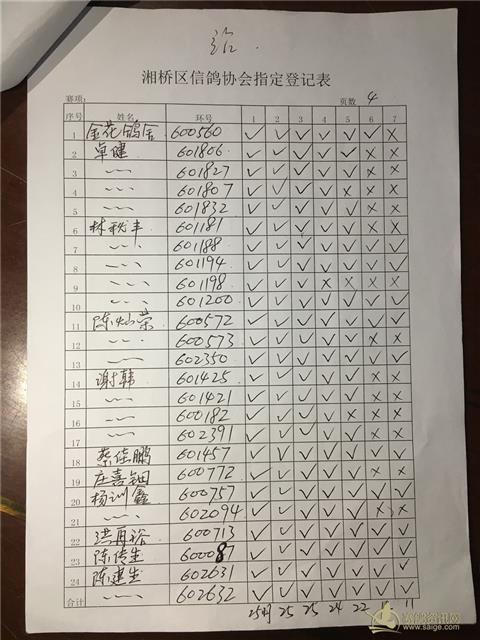 湘桥区信鸽协会指定登记表
赛项： 页数 4
序号 姓名 环号 1 2 3 4 5 6 7
1 金花鸽舍 600560 ✓ ✓ ✓ ✓ ✓ ✓ ×
2 卓健 601806 ✓ ✓ ✓ ✓ ✓ × ×
3 〃 601827 ✓ ✓ ✓ ✓ ✓ × ×
4 〃 601807 ✓ ✓ ✓ ✓ × × ×
5 〃 601832 ✓ ✓ ✓ ✓ ✓ × ×
6 林秋丰 601181 ✓ ✓ ✓ ✓ ✓ × ×
7 〃 601188 ✓ ✓ ✓ ✓ ✓ ✓ ✓
8 〃 601194 ✓ ✓ ✓ ✓ ✓ ✓ ✓
9 〃 601198 ✓ ✓ ✓ × × × ×
10 〃 601200 ✓ ✓ ✓ ✓ ✓ ✓ ✓
11 陈灿荣 600572 ✓ ✓ ✓ ✓ ✓ ✓ ✓
12 〃 600573 ✓ ✓ ✓ ✓ ✓ × ×
13 〃 602350 ✓ ✓ ✓ ✓ ✓ ✓ ✓
14 谢韩 601425 ✓ ✓ ✓ ✓ ✓ × ×
15 〃 601421 ✓ ✓ ✓ ✓ ✓ ✓ ×
16 〃 600182 ✓ ✓ ✓ ✓ × × ×
17 〃 602391 ✓ ✓ ✓ ✓ ✓ × ×
18 蔡佳鹏 601457 ✓ ✓ ✓ ✓ ✓ ✓ ✓
19 庄喜钿 600772 ✓ ✓ ✓ ✓ ✓ × ×
20 杨训鑫 600757 ✓ ✓ ✓ ✓ ✓ ✓ ✓
21 〃 602094 ✓ ✓ ✓ ✓ ✓ × ×
22 洪再裕 600713 ✓ ✓ ✓ ✓ ✓ ✓ ✓
23 陈传生 600087 ✓ ✓ ✓ ✓ ✓ ✓ ✓
24 陈建生 602631 ✓ ✓ ✓ ✓ ✓ ✓ ✓
合计 〃 602632 ✓ ✓ ✓ ✓ ✓ ✓ ✓
25羽 25 25 24 22 11
www.saige.com